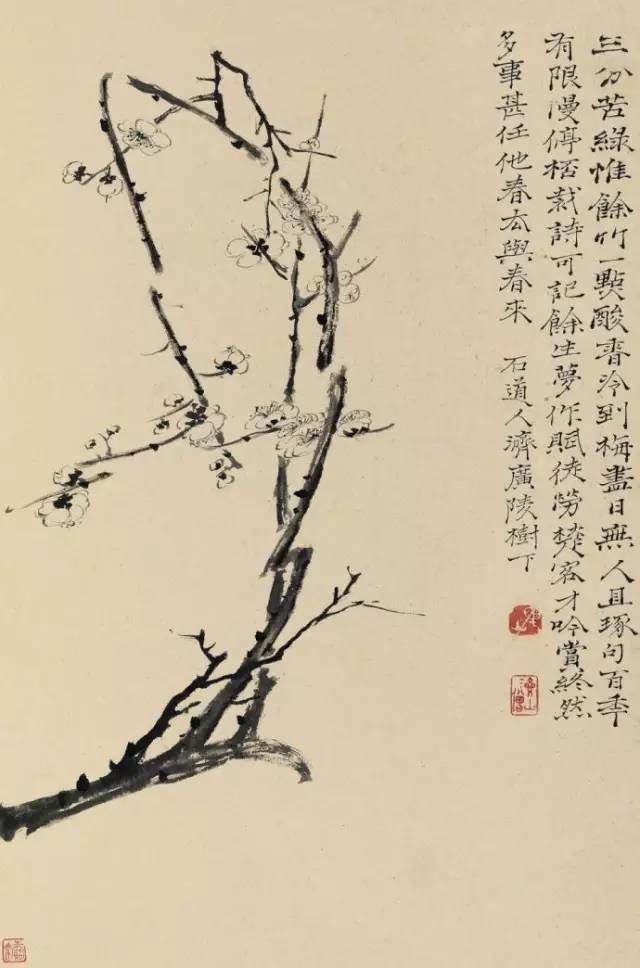 三分苦綠惟餘竹一點酸香冷到梅盡日無人且琢句百年
有限漫停桮裁詩可記餘生夢作賦徒勞楚客才吟賞終然
多事甚任他春去與春來 石道人濟廣陵樹下